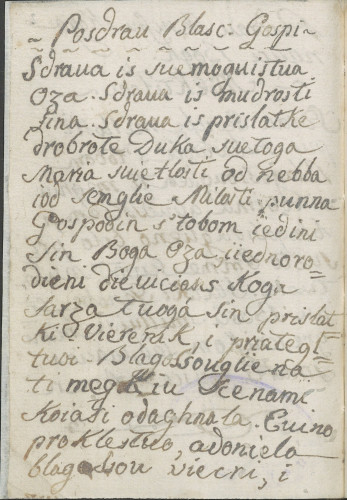 ~ Posdrau Blasc: Gospi ~
Sdraua is suemoguistua
Oza. Sdraua is mudrosti
sina. Sdraua is prislatke
drobrote Duka suetoga
Maria suietlosti od nebba
iod semglie Milosti punna
Gospodin s'tobom iedini
sin Boga Oza, iiednoro-
dieni dieuicious Koga
sarza tuoga sin prislat
ki Vierenik, i priategl
tuoi - Blagossouglie na
ti megiu scenami
Koiasi odaghnala. Euino
proklestuo, adoniela
blagossou viecni, i